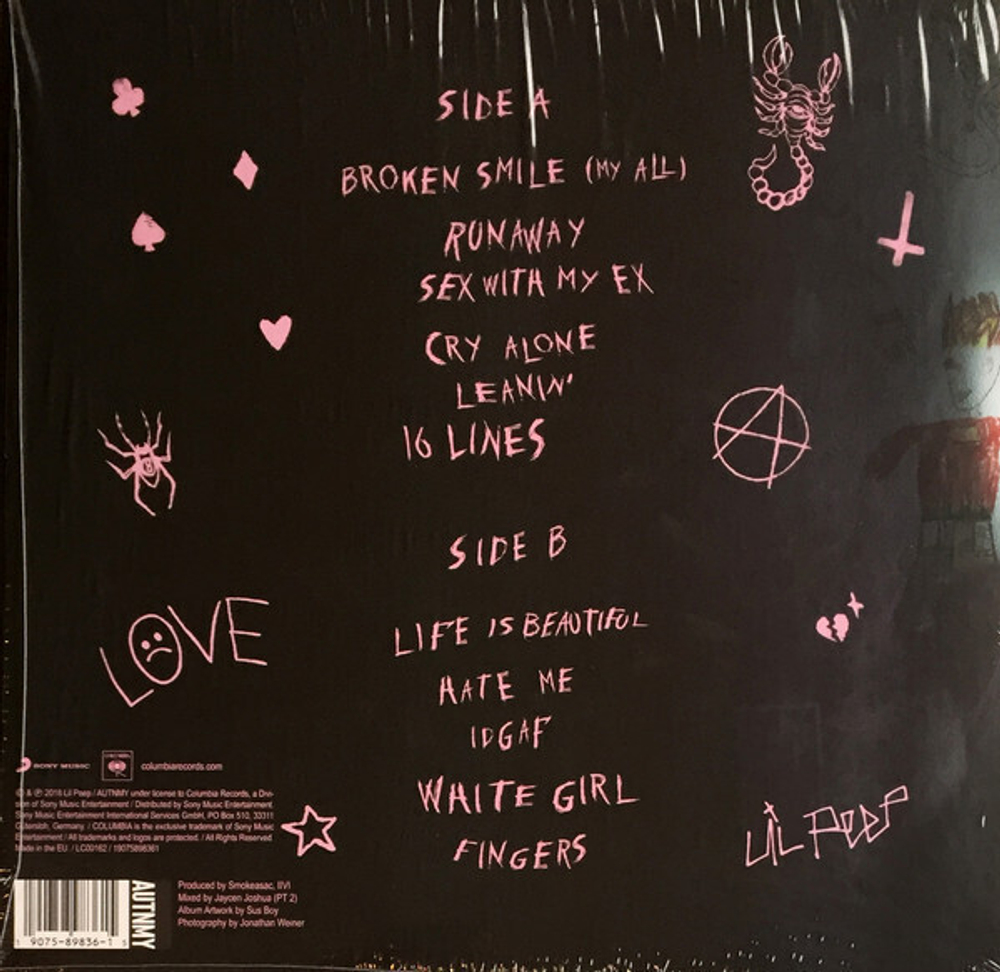 SIDE A
BROKEN SMILE (MY ALL)
RUNAWAY
SEX WITH MY EX
CRY ALONE
LEANIN'
16 LINES
SIDE B
LIFE IS BEAUTIFUL
HATE ME
IDGAF
WHITE GIRL
FINGERS
LOVE
LiL PEEP
SONY MUSIC
columbiarecords.com
© & ℗ 2018 Lil Peep / AUTNMY under license to Columbia Records, a Divi-
sion of Sony Music Entertainment / Distributed by Sony Music Entertainment.
Sony Music Entertainment International Services GmbH, PO Box 510, 33311
Gütersloh, Germany. / COLUMBIA is the exclusive trademark of Sony Music
Entertainment / All trademarks and logos are protected. / All Rights Reserved.
Made in the EU. / LC00162 / 19075898361
AUTNMY
1 9075-89836-1 5
Produced by Smokeasac, IIVI
Mixed by Jaycen Joshua (PT 2)
Album Artwork by Sus Boy
Photography by Jonathan Weiner